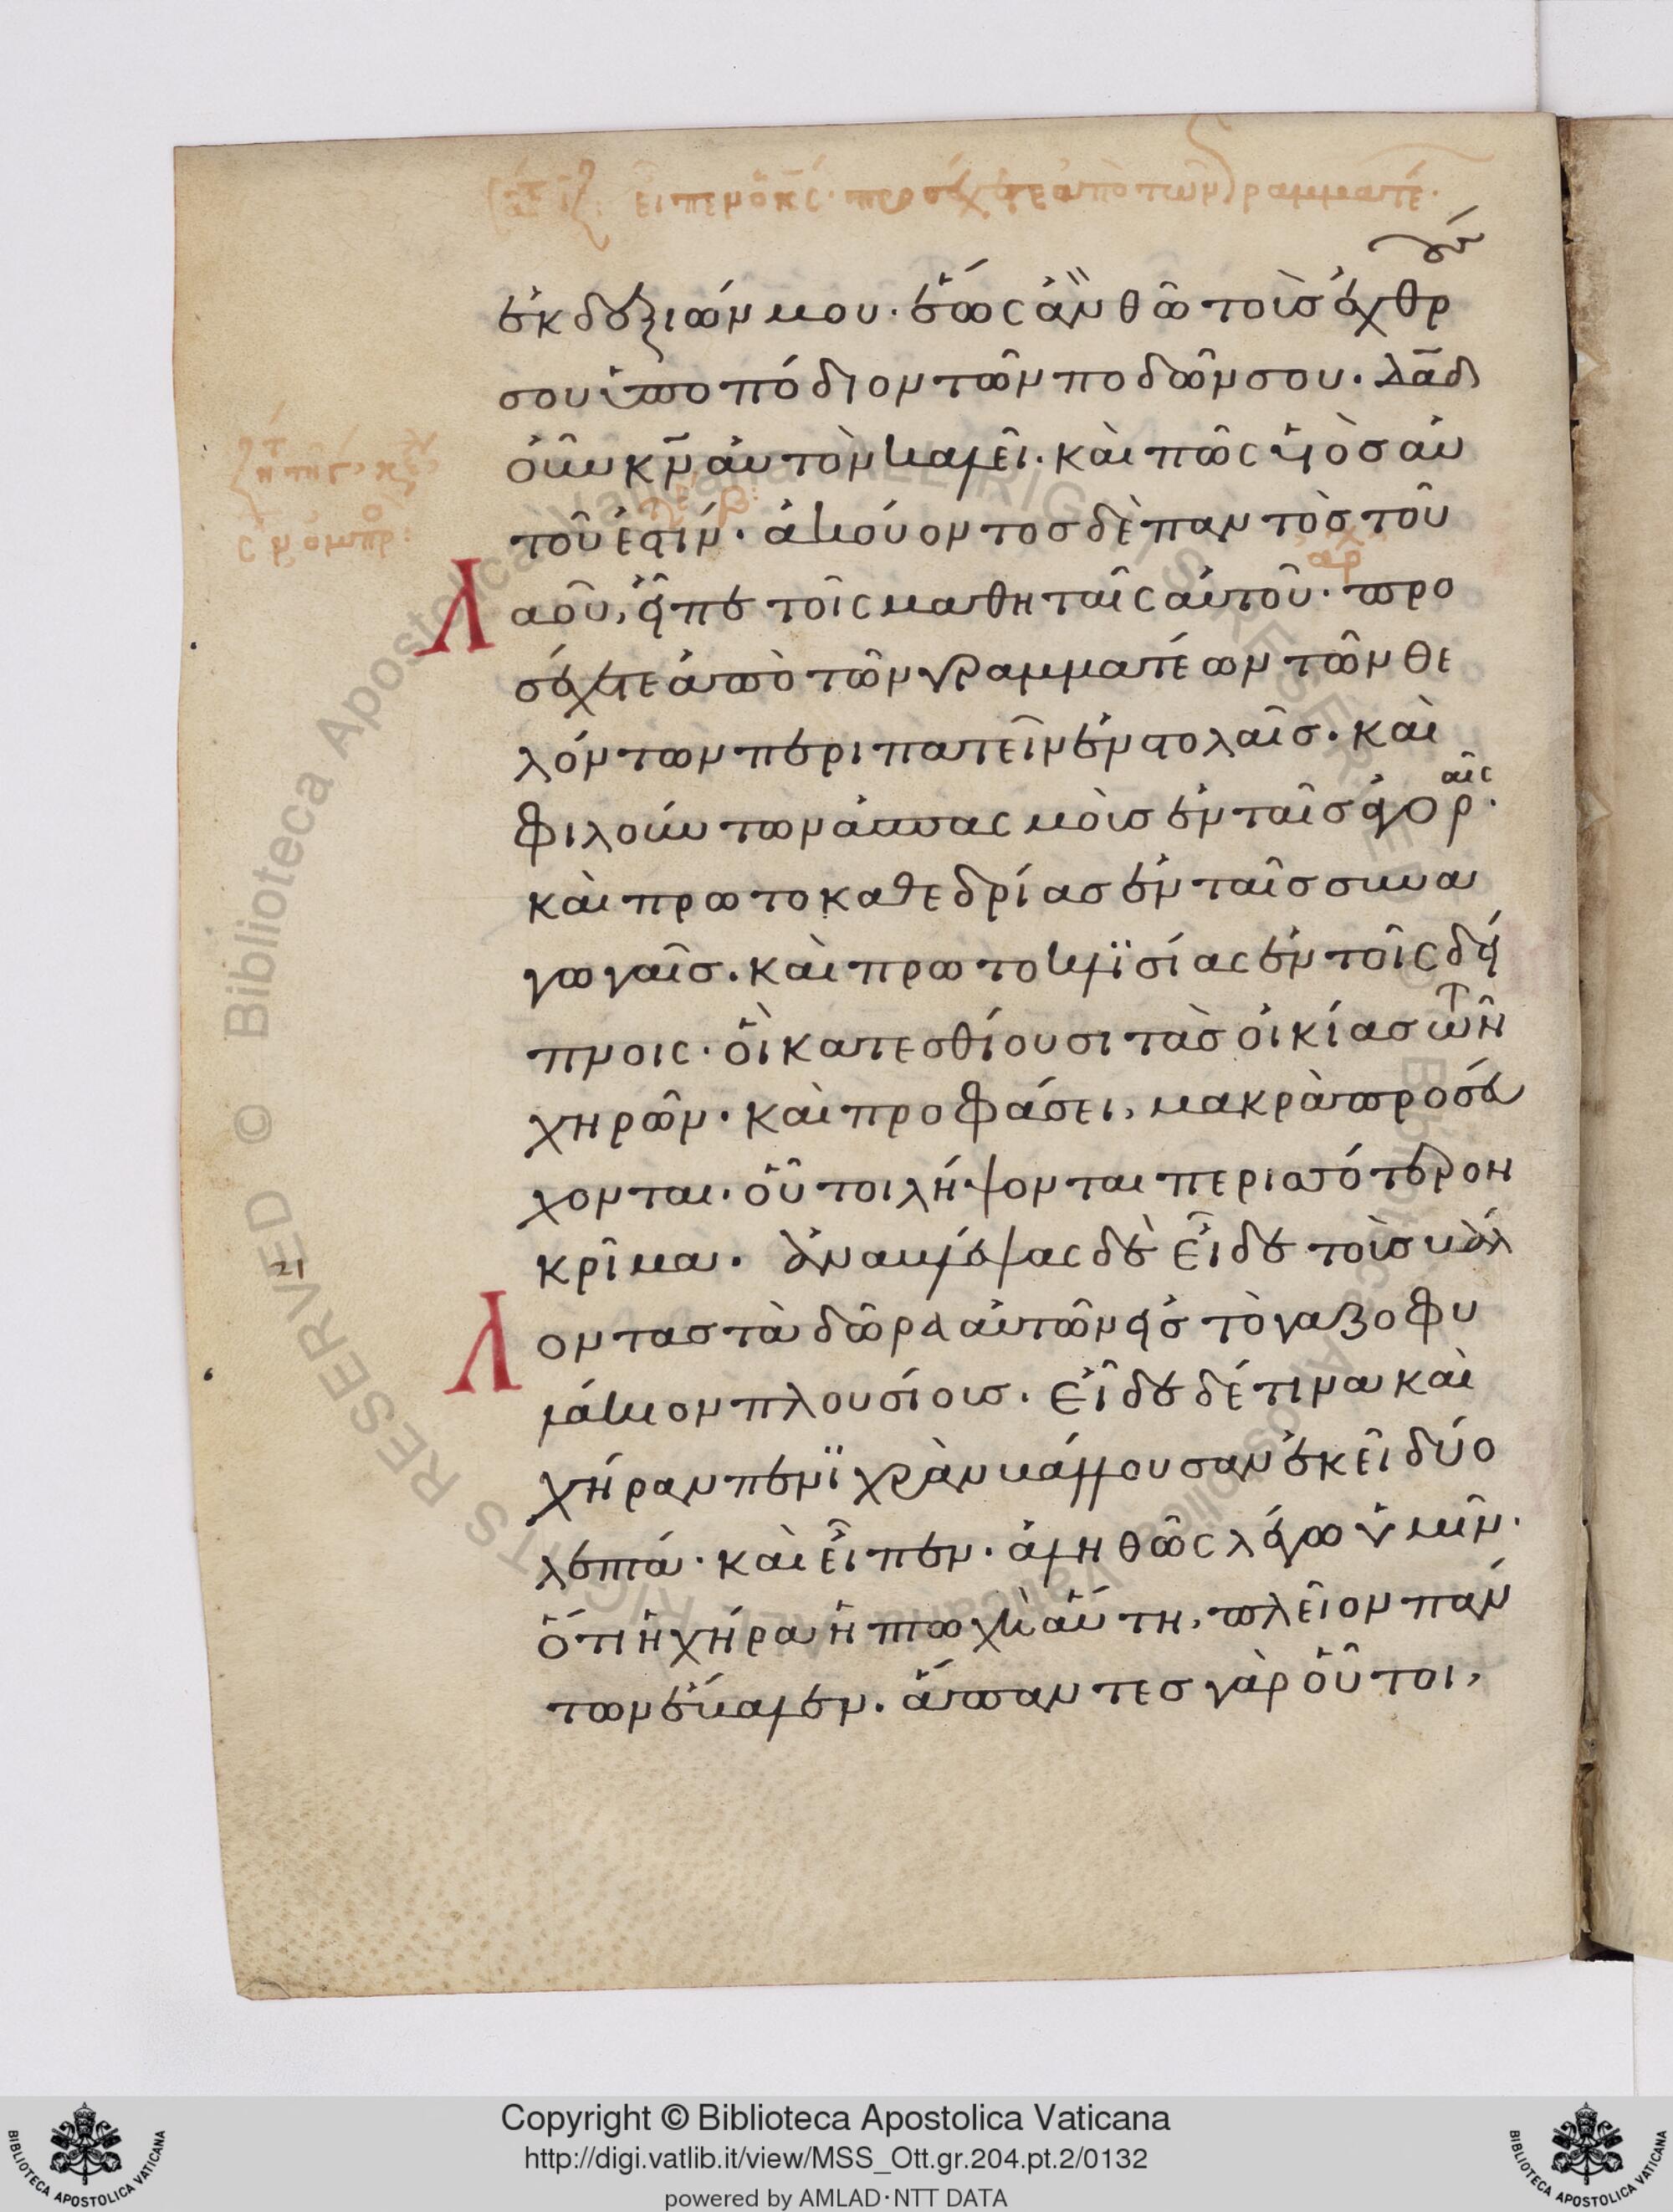 εἶπεν ὁ κς· προσέχετε ἀπὸ τῶν γραμματέ
ἐκ δεξιῶν μου· ἕως ἂν θῶ τοὺς ἐχθρ(οὺς)
σου ὑποπόδιον τῶν ποδῶν σου· δᾱδ
οὖν κ̄ν αὐτὸν καλεῖ· καὶ πῶς υἱὸς αὐ
τοῦ ἐστίν· ἀκούοντος δὲ παντὸς τοῦ
λαοῦ, εἶπε τοῖς μαθηταῖς αὐτοῦ· προ
σέχετε ἀπὸ τῶν γραμματέων τῶν θε
λόντων περιπατεῖν ἐν στολαῖς· καὶ
φιλούντων ἀσπασμοὺς ἐν ταῖς ἀγοραῖς·
καὶ πρωτοκαθεδρίας ἐν ταῖς συνα
γωγαῖς· καὶ πρωτοκλισίας ἐν τοῖς δεί
πνοις· οἳ κατεσθίουσι τὰς οἰκίας τῶν
χηρῶν· καὶ προφάσει, μακρὰ προσεύ
χονται· οὗτοι λήψονται περισσότερον
κρῖμα· ἀναβλέψας δὲ εἶδε τοὺς βάλ
λοντας τὰ δῶρα αὐτῶν εἰς τὸ γαζοφυ
λάκιον πλουσίους· εἶδε δέ τινα καὶ
χήραν πενιχρὰν βάλλουσαν ἐκεῖ δύο
λεπτά· καὶ εἶπεν· ἀληθῶς λέγω ὑμῖν·
ὅτι ἡ χήρα ἡ πτωχὴ αὕτη, πλεῖον πάν
των ἔβαλεν· ἅπαντες γὰρ οὗτοι,
RESERVED © Biblioteca Apostolica Vaticana ALL RIGHTS RESERVED
© Biblioteca Apostolica Vaticana ALL RIGHTS
BIBLIOTECA APOSTOLICA VATICANA
Copyright © Biblioteca Apostolica Vaticana
http://digi.vatlib.it/view/MSS_Ott.gr.204.pt.2/0132
powered by AMLAD·NTT DATA
BIBLIOTECA APOSTOLICA VATICANA